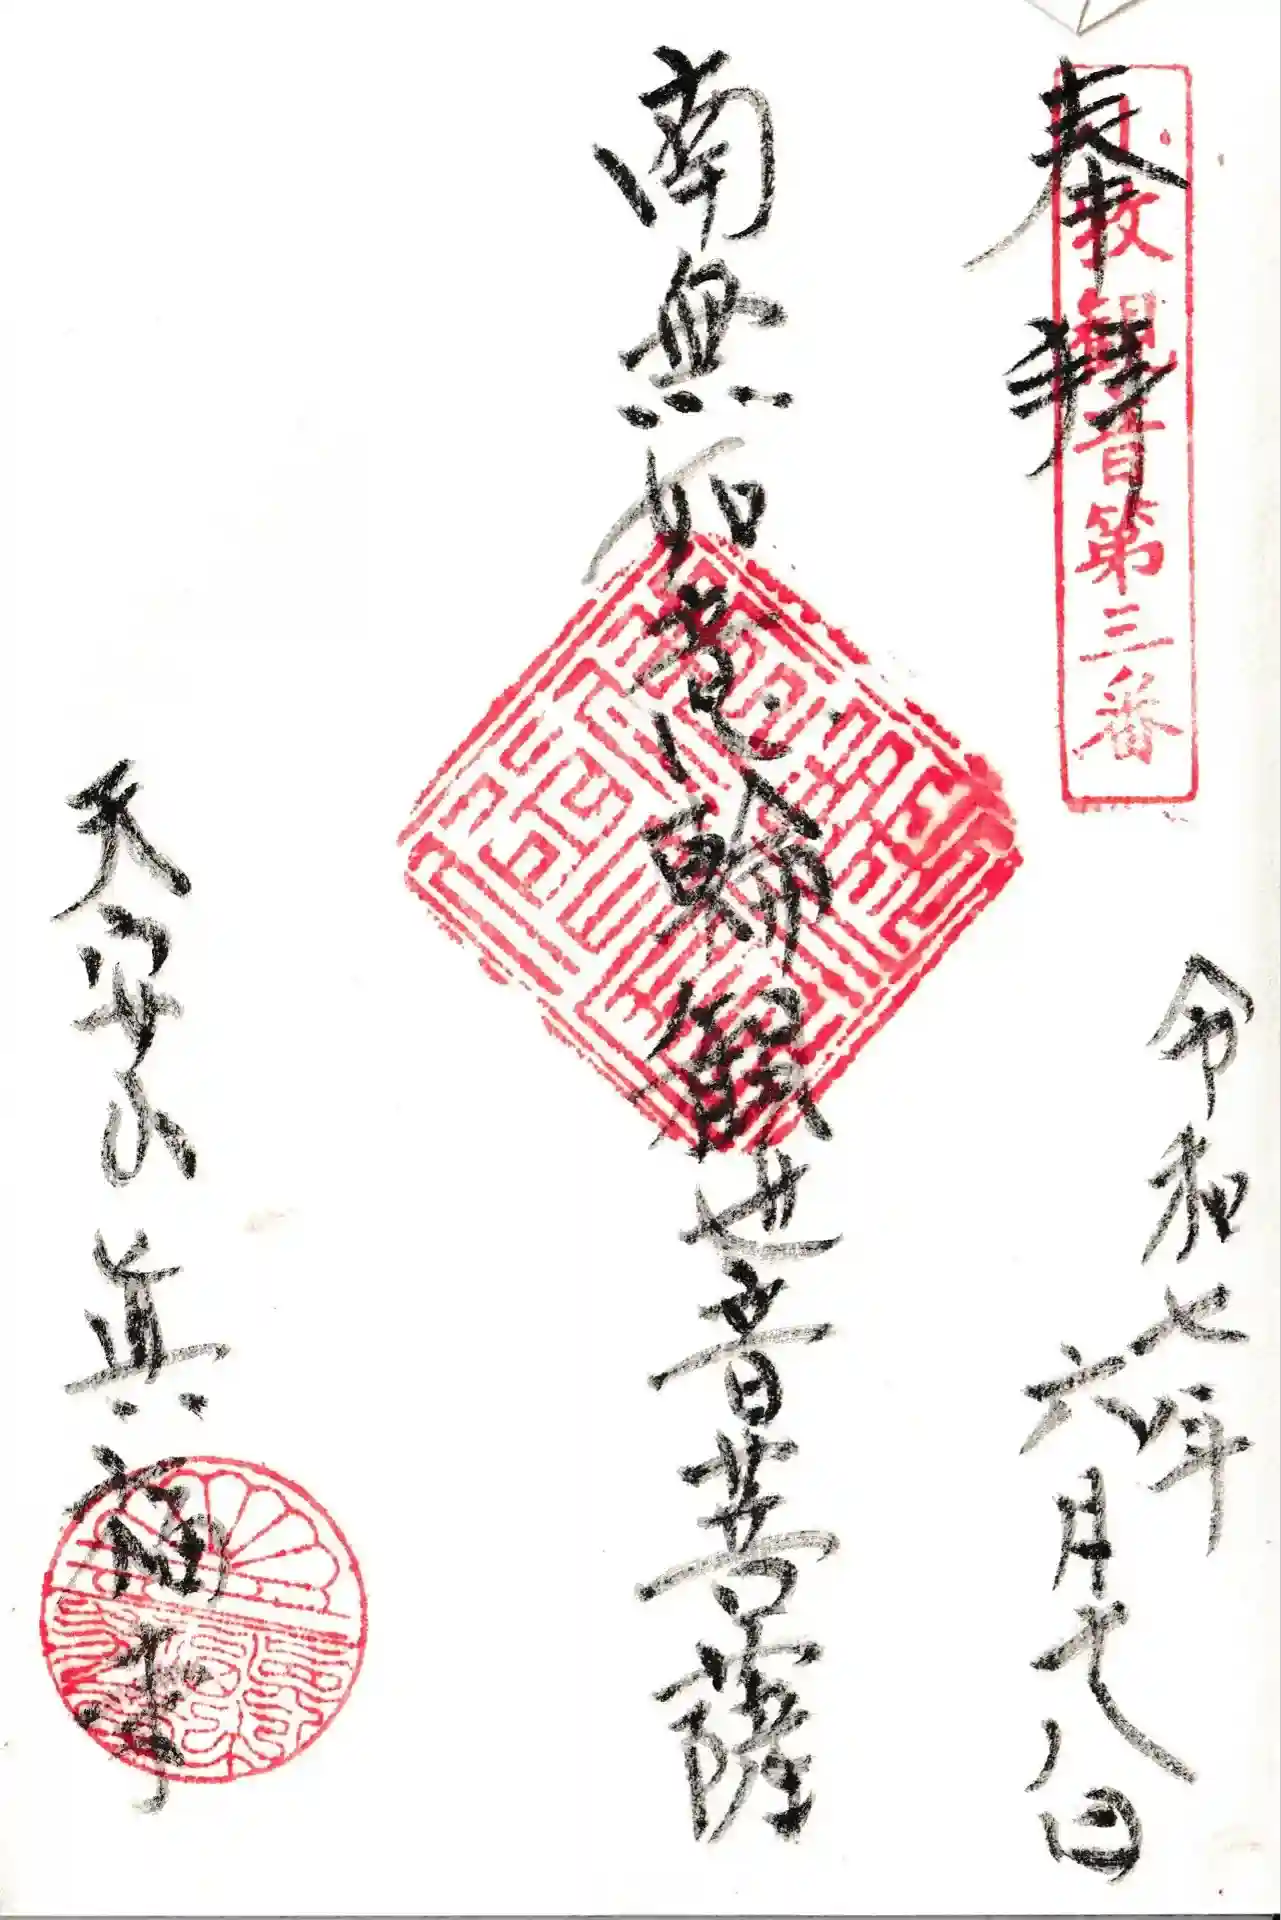 奉拝
観音第三番
令和七年
六月十八日
南無如意輪観世音菩薩
天安山 眞福寺